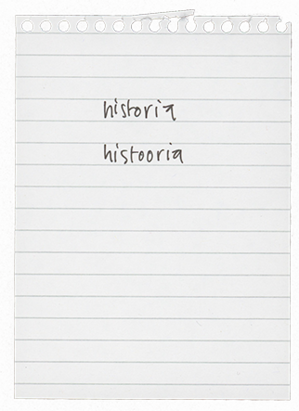 historia
histooria